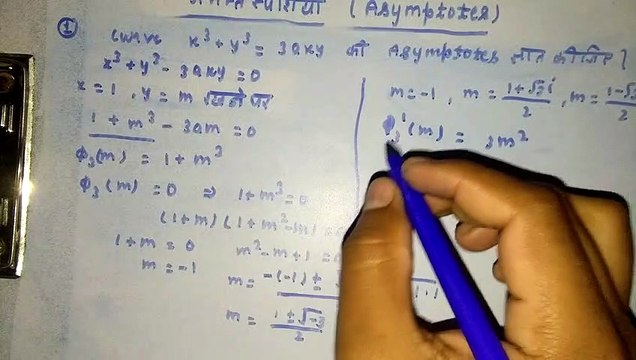 (Asymptotes)
① Curve x³ + y³ = 3axy की Asymptotes ज्ञात कीजिए।
x³ + y³ - 3axy = 0
x = 1 , y = m रखने पर
1 + m³ - 3am = 0
ϕ₃(m) = 1 + m³
ϕ₃(m) = 0 ⇒ 1 + m³ = 0
(1+m) (1+m²-m)
1 + m = 0 m² - m + 1 =
m = -1 m = -(-1) ±
m = 1 ± √-3 / 2
m = -1 , m = 1+√3i / 2 , m = 1-√3 / 2
ϕ₃'(m) = 3m²